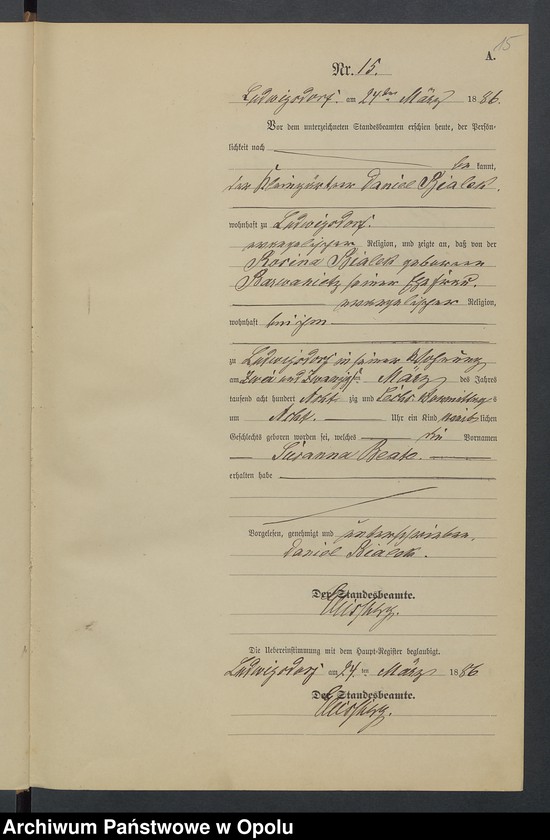 15
A.
Nr. 15.
Ludwigsdorf, am 24ten März 1886.
Vor dem unterzeichneten Standesbeamten erschien heute, der Persön-
lichkeit nach
be kannt,
der Kleingärtner Daniel Bialek,
wohnhaft zu Ludwigsdorf.
evangelischer Religion, und zeigte an, daß von der
Rosina Bialek geborenen
seiner Ehefrau.
evangelischer Religion,
wohnhaft bei ihm
zu Ludwigsdorf in seiner Wohnung
am Zwei und Zwanzigsten März des Jahres
tausend acht hundert Acht zig und Sechs Vormittags
um Acht. Uhr ein Kind weib lichen
Geschlechts geboren worden sei, welches die Vornamen
Susanna Beate.
erhalten habe
Vorgelesen, genehmigt und unterschrieben,
Daniel Bialek.
Der Standesbeamte.
Die Uebereinstimmung mit dem Haupt-Register beglaubigt.
Ludwigsdorf am 24. ten März 1886
Der Standesbeamte.
Archiwum Państwowe w Opolu